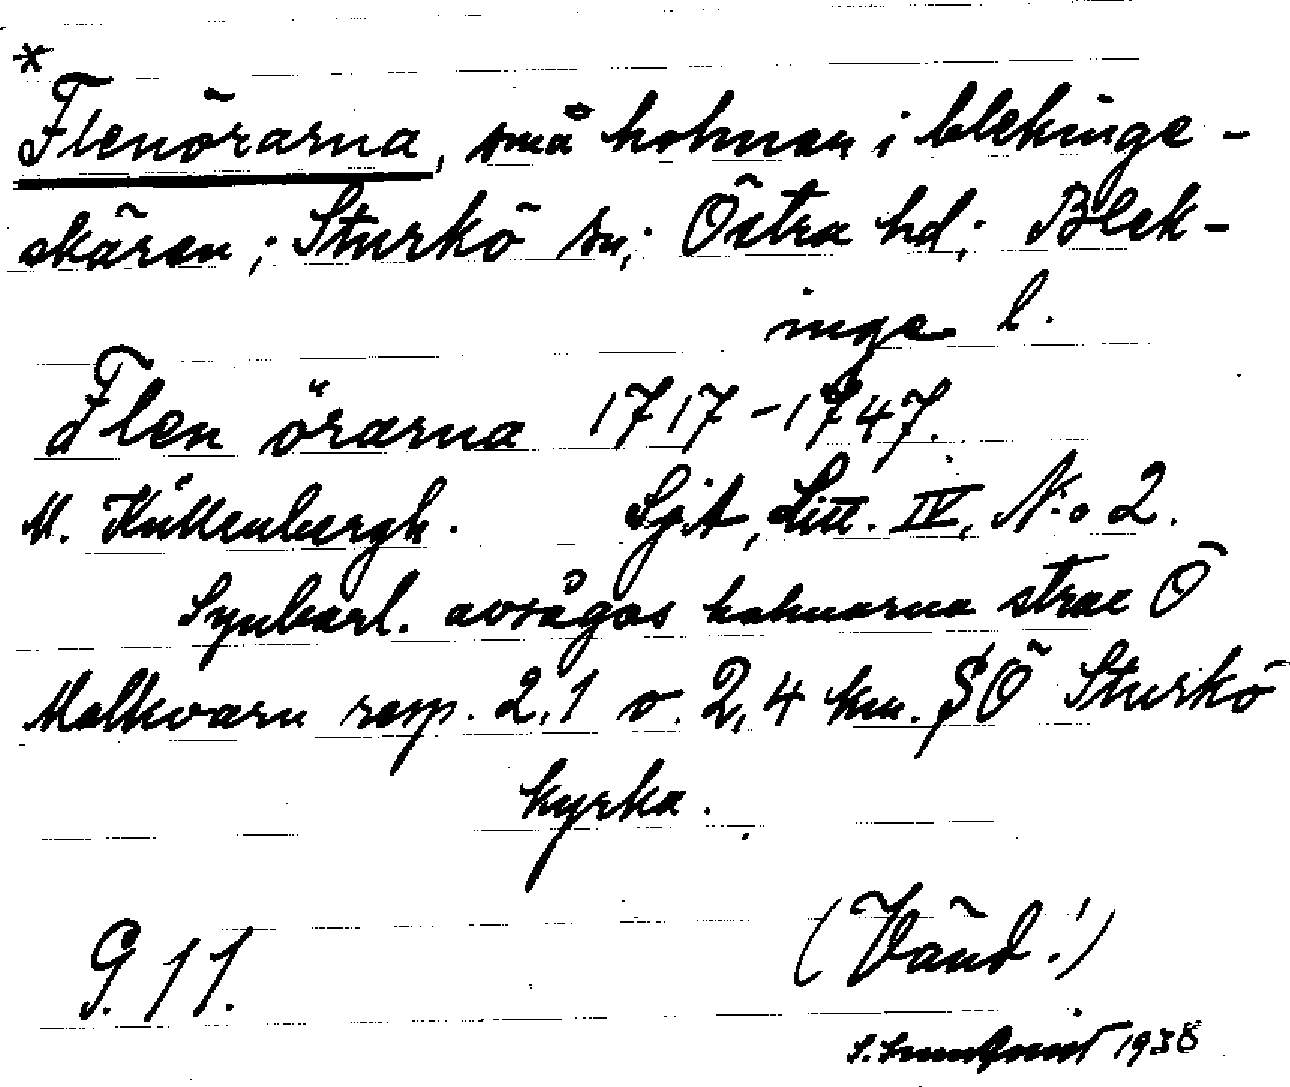 *
Flenörarna, små holmar i blekinge-
skären; Sturkö sn; Östra hd; Blek-
inge l.
Flen örarna 1717-1747.
M. Küllenbergh. Sjit, Litt. IV, N:o 2.
Synbarl. avsågos holmarna strax Ö
Malkvarn resp. 2,1 o. 2,4 km. SÖ Sturkö
kyrka.
G. 11. (Vänd!)
1938